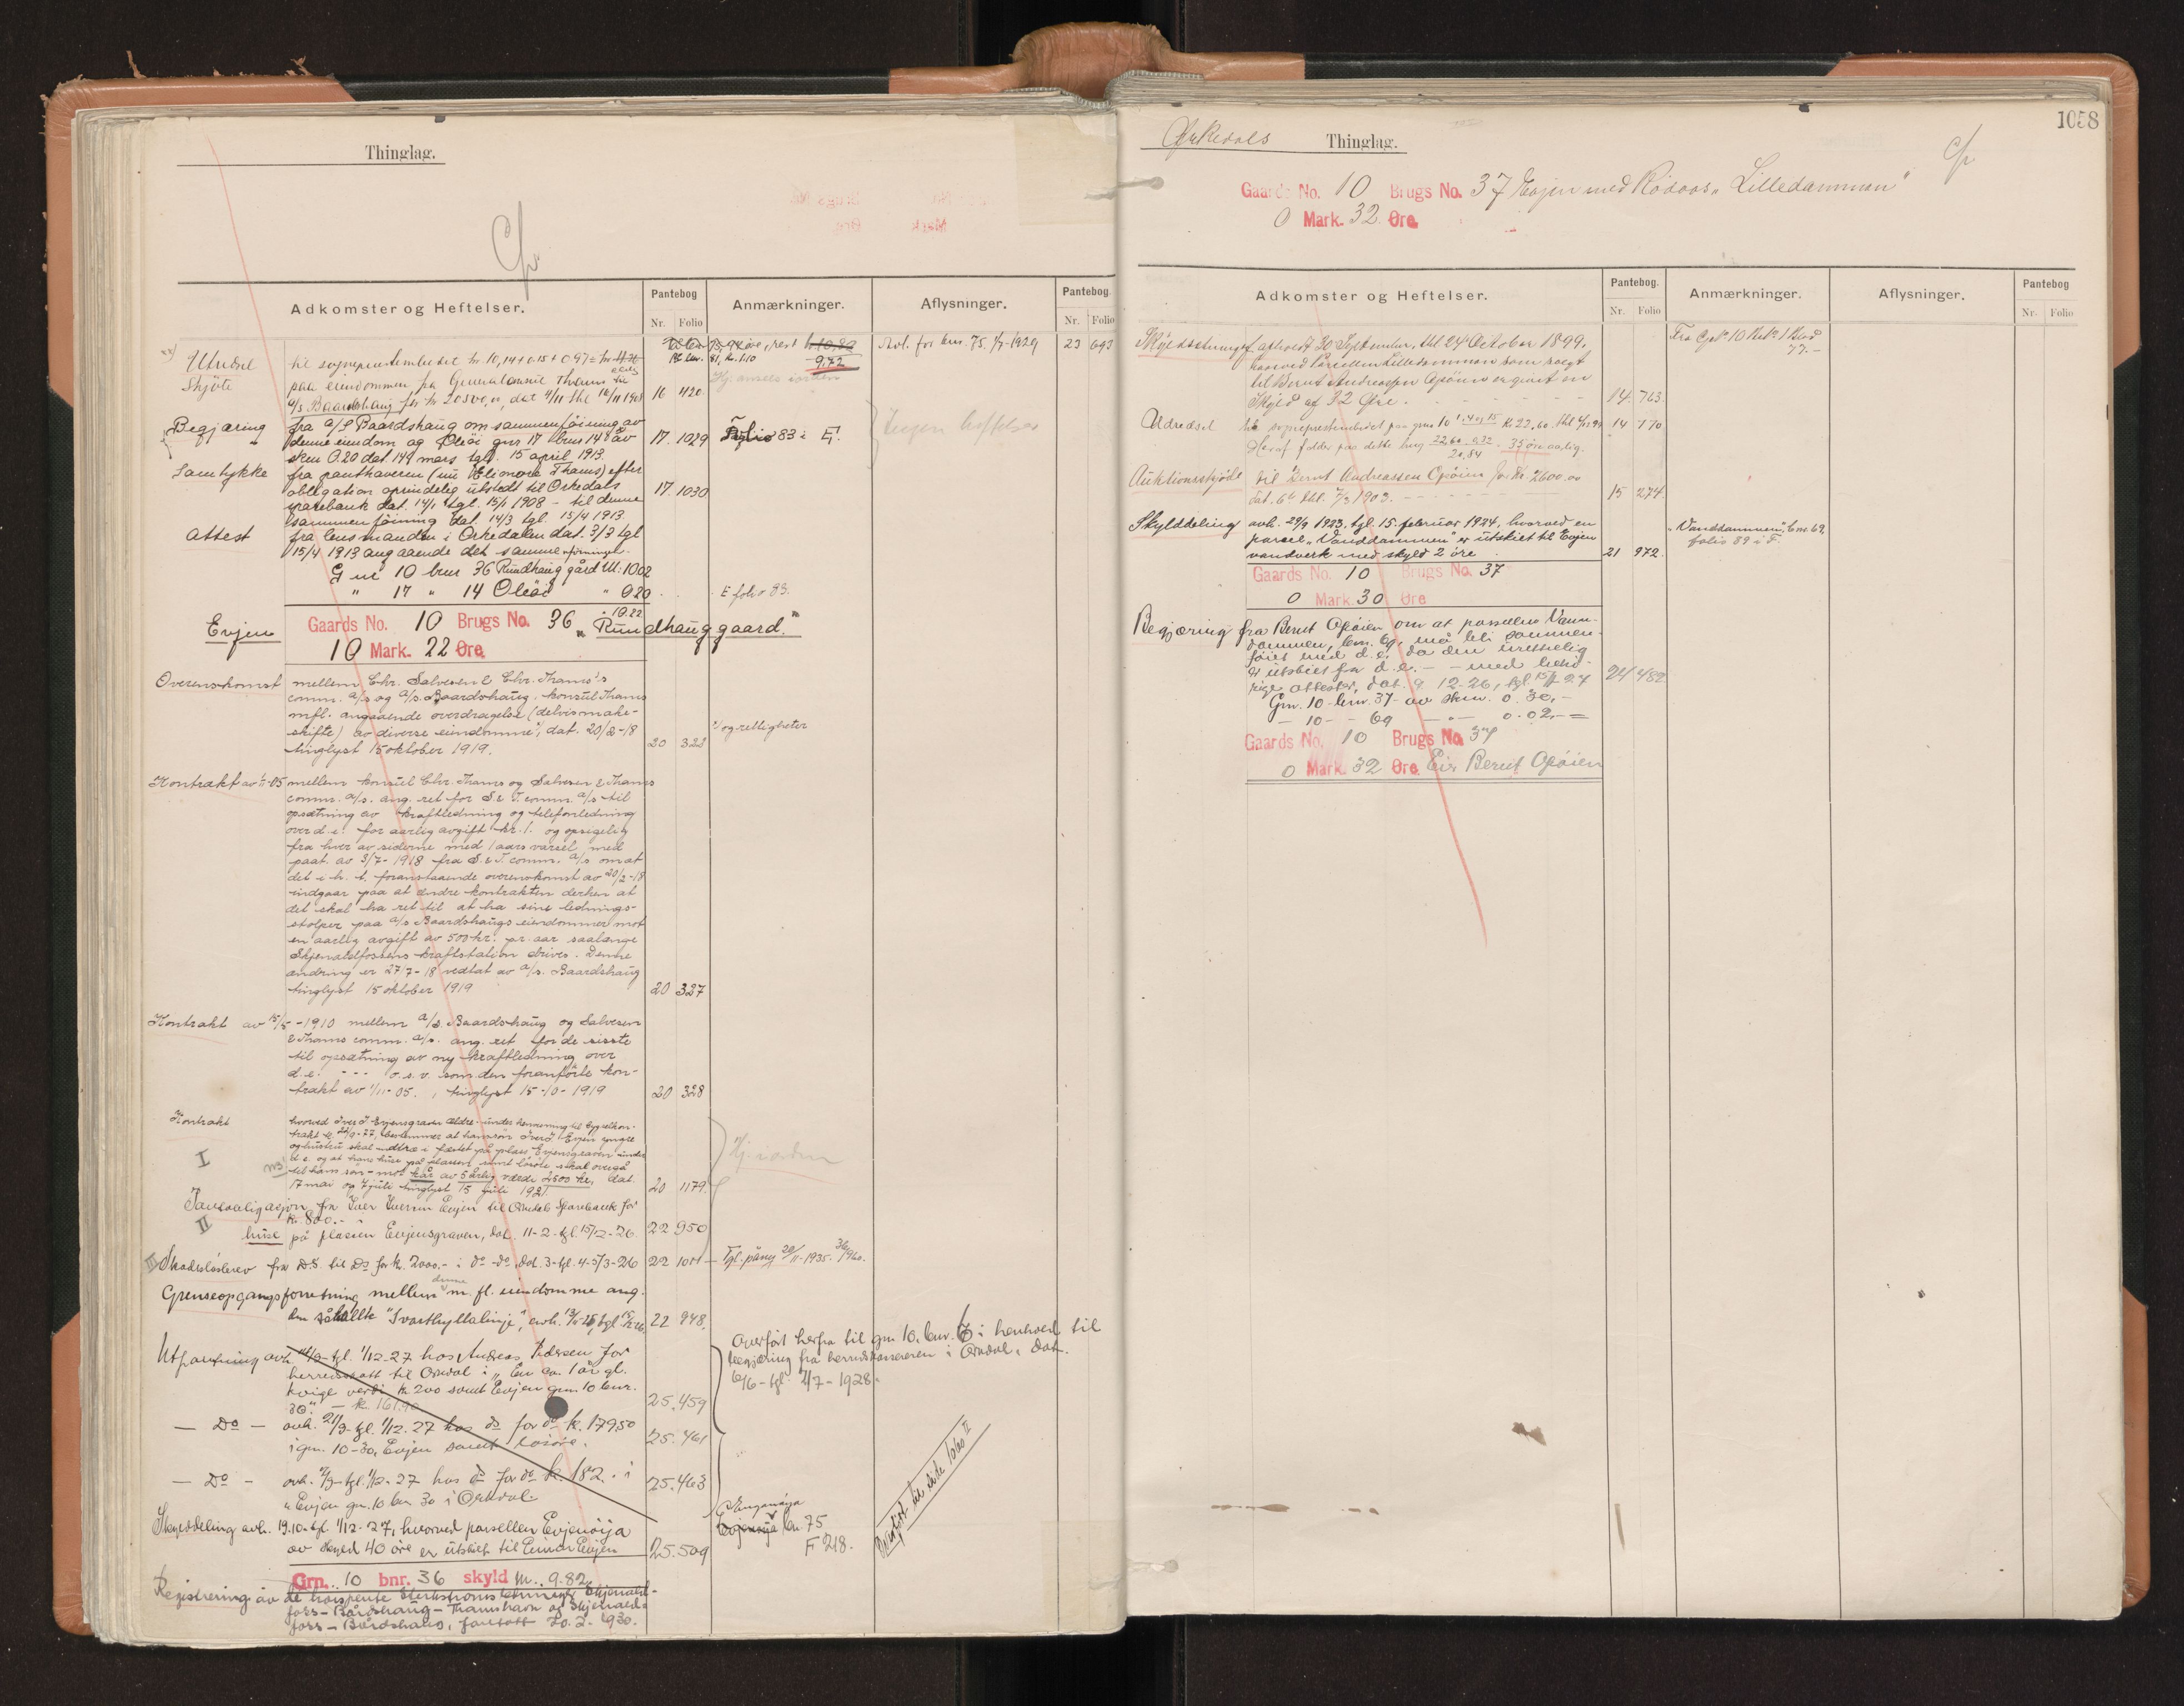 Thinglag.
Adkomster og Heftelser.
Pantebog
Nr. Folio
Anmærkninger.
Aflysninger.
Pantebog.
Nr. Folio
Utredsel til sogneprestembedet kr 10,14 + 0.15 + 0.97 = kr
9.72
Avl. for bnr. 75. 1929 23 693
Skjøte paa eiendommen fra Generalkonsul Thams til
A/s Baardshaug for kr 20500,00, dat 4/11 thl 16/11 1908 16 420.
Begjæring fra A/S Baardshaug om sammenføining av
denne eiendom og Oleöi gnr 17 brnr 14 av
skm 0.20 dat. 14 mars tgl. 15 april 1913. 17. 1029 Folio 83 i E.
Ingen heftelser
Samtykke fra panthaveren (nu Elimone Thams) efter
obligation oprindelig utstedt til Orkedals
sparebank dat. 14/1 tgl. 15/1 1908 – til denne
sammenföining dat. 14/3 tgl. 15/4 1913 17. 1030
Attest fra lensmanden i Orkedalen dat. 3/3 tgl
15/4 1913 angaaende det samme
Gnr 10 bnr 36 Rundhaug gård M: 10.02
" 17 " 14 Oleöi " 0.20. E folio 83.
10.22
Evjen Gaards No. 10 Brugs No. 36 "Rundhauggaard."
10 Mark. 22 Øre.
Overenskomst mellem Chr. Salvesen & Chr. Thams's
comm. a/s og a/s. Baardshaug, konsul Thams
mfl. angaaende overdragelse (delvis make-
skifte) av diverse eiendomme, dat. 20/2-18
tinglyst 15 oktober 1919. 20 323 og rettigheter
Kontrakt av 1/11-05 mellem konsul Chr. Thams og Salvesen & Thams
comm. a/s. ang. ret for S. & T. comm. a/s til
opsætning av kraftledning og telefonledning
over d.e. for aarlig avgift kr. 1. og opsigelig
fra hver av siderne med 1 aars varsel med
paat. av 3/7-1918 fra S. & T. comm. a/s om at
det i h. t. foranstaaende overenskomst av 20/2-18
indgaar paa at ændre kontrakten derhen at
det skal ha ret til at ha sine lednings-
stolper paa a/s Baardshaugs eiendommer mot
en aarlig avgift av 500 kr. pr. aar saalænge
Skjenaldfossens kraftstation drives. Denne
ændring er 27/7-18 vedtat av a/s. Baardshaug
tinglyst 15 oktober 1919 20 327
Kontrakt av 15/5-1910 mellem a/s Baardshaug og Salvesen
& Thams comm. a/s. ang. ret for de sisste
til opsætning av ny kraftledning over
d.e. --- o.s.v. som den foranførte kon-
trakt av 1/11-05., tinglyst 15-10-1919 20 328
I Kontrakt hvorved Evjensgraven ældre under henvisning til bygselkon-
trakt bestemmer at hans søn Evjen yngre
og hustru skal indtræ i fæstet på plass Evjensgraven under
d.e. og at hans huse på plassen samt løsøre skal overgå
til hans søn – mot kår av 5 årlig værdi 2500 kr, dat.
17 mai og 7 juli tinglyst 15 juli 1921. 20 1179.
II Panteobligasjon fra Iver Iversen Evjen til Orkdals Sparebank for
kr. 800.-
huse på plassen Evjensgraven, dat. 11-2. tgl. 15/2-26. 22 950
III Skadesløsbrev fra D.S. til Do for kr. 2000.- i do - do, dat. 3- tgl. 4-3-26 22 1011 – Tgl. påny 20/11-1935.
Grenseopgangsforretning mellem denne m. fl. eiendomme ang.
den såkallte "Svarthyllalinje", 22 948.
Utpantning avh. tgl. 1/12-27 hos Andreas Pedersen for
herredsskatt til Orkdal i "En ca. 1 år gl.
kvige verdi kr 200 samt Evjen gnr. 10 bnr.
30" – kr. 161.90 25.459
Overført herfra til gnr 10. bnr. 6 i henhold til
begjæring fra herredskassereren i Orkdal, dat.
tgl. 2/7-1928.
— Do — avh. 21/9-tgl. 1/12.27 hos do for do kr. 179.50
i gnr. 10-30, Evjen samt løsøre. 25.461
— Do — avh. tgl. 1/12-27 hos do for do kr. 182. - i
"Evjen gnr. 10 bnr 30 i Orkdal. 25.463
Skylddeling avh. 19.10.-tgl. 1/12-27, hvorved parsellen Evjenøya
av skyld 40 øre er utskilt til Einar Evjen 25.509
Evjenøya bnr. 75
F 218.
Overført til side 1060 II
Grn. 10 bnr. 36 skyld m. 9.82
Registrering av de høispente sterkstrømsledninger Skjenald-
foss – Bårdshaug – Thamshavn og Skjenald-
foss – Bårdshaug, foretatt 20.2.1930.
1058
Orkedals Thinglag.
Gaards No. 10 Brugs No. 37 Evjen med Rödaas „Lilledammen"
0 Mark. 32 Øre.
Adkomster og Heftelser.
Pantebog.
Nr. Folio
Anmærkninger.
Aflysninger.
Pantebog
Nr. Folio
Skyldsætningsf. afholdt 30 September, thl 24 October 1899,
hvorved Parcellen Lilledammen som solgt
til Bernt Andreassen Opöien er givet en
Skyld af 32 Øre. 14. 763.
Fra Gno 10 Bno 1
77.-
Udredsel til sogneprestembedet paa gnr 10 1, 4 og 15 Kr 22,60. 14 770
Heraf falder paa dette brug 22,60 . 0,32 / 20,84 35 øre aarlig.
Auktionsskjöde til Bernt Andreassen Opöien for Kr. 2600.00
dat. 6te thl. 7/3 1903. 15 274.
Skylddeling avh. 29/9 1923, tgl. 15. februar 1924, hvorved en
parsel „Vanddammen" er utskilt til Evjen
vandverk med skyld 2 öre 21 972.
„Vanddammen", bnr. 69,
folio 89 i F.
Gaards No. 10 Brugs No. 37
0 Mark 30 Øre
Begjæring fra Bernt Opöien om at parsellen Vann-
dammen, bnr. 69, må bli sammen-
föiet med d.e. da den urettelig
er utskilt fra d.e. — med beho-
rige attester, dat. 9. 12-26, tgl. 24 482
Gnr. 10 bnr. 37 – av skm. 0.30,-
— 10 - - 69 — " — 0.02,- =
Gaards No. 10 Brugs No. 37
0 Mark. 32 Øre. Eier Bernt Opöien